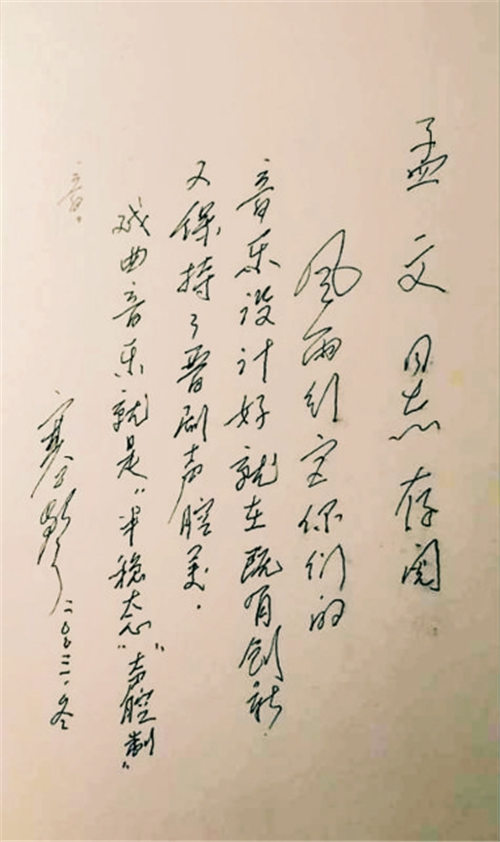 孟文同志存阅
风雨行宫你们的
音乐设计好就在既有创新.
又保持了晋剧声腔美.
戏曲音乐就是"半稳态"声腔制"
音。
寒声 二〇〇三.冬